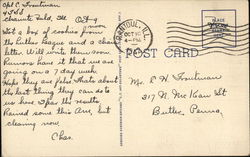 Cpl C. Troutman
4353
Chanute Field, Ill Oct-9
noon
Got a box of cookies from
the Luther league and a chain
letter. Will write them soon.
Rumors have it that we are
going on a 7 day week.
Hope they are false. Thats about
the best thing they can do to
us here. Has the results
Rained some this Am, but
clearing now
Chas.
RANTOUL, ILL.
OCT 10
4 - PM
POST CARD
PLACE
STAMP
HERE
Mr. R H Troutman
317 N. McKean St
Butler Penna.